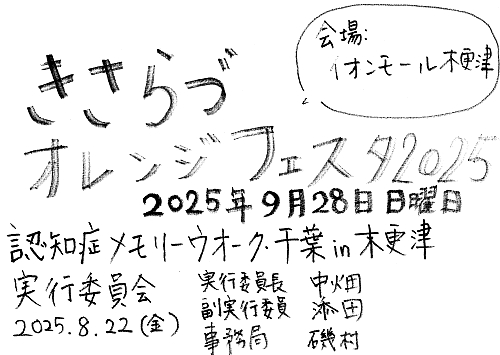 会場:
イオンモール木更津
きさらづ
オレンジフェスタ2025
2025年9月28日日曜日
認知症メモリーウオーク・千葉in木更津
実行委員会
2025.8.22(金)
実行委員長 中畑
副実行委員 添田
事務局 磯村